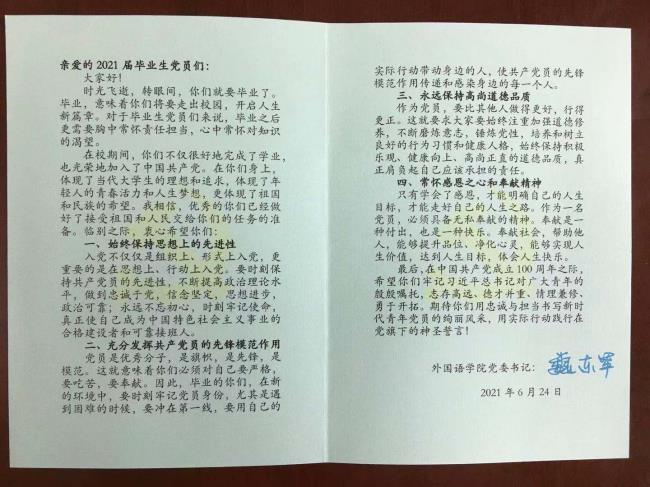 亲爱的 2021 届毕业生党员们：
大家好！
时光飞逝，转眼间，你们就要毕业了。
毕业，意味着你们将要走出校园，开启人生
新篇章。对于毕业生党员们来说，毕业之后
更需要胸中常怀责任担当，心中常怀对知识
的渴望。
在校期间，你们不仅很好地完成了学业，
也光荣地加入了中国共产党。在你们身上，
体现了当代大学生的理想和追求，体现了年
轻人的青春活力和人生梦想，更体现了祖国
和民族的希望。我相信，优秀的你们已经做
好了接受祖国和人民交给你们的任务的准
备。临别之际，衷心希望你们：
一、始终保持思想上的先进性
入党不仅仅是组织上、形式上入党，更
重要的是在思想上、行动上入党。要时刻保
持共产党员的先进性，不断提高政治理论水
平，做到忠诚于党，信念坚定，思想进步，
政治可靠；永远不忘初心，时刻牢记使命，
真正使自己成为中国特色社会主义事业的
合格建设者和可靠接班人。
二、充分发挥共产党员的先锋模范作用
党员是优秀分子，是旗帜，是先锋，是
模范。这就意味着你们必须对自己要严格，
要吃苦，要奉献。因此，毕业的你们，在新
的环境中，要时刻牢记党员身份，尤其是遇
到困难的时候，要冲在第一线，要用自己的
实际行动带动身边的人，使共产党员的先锋
模范作用传递和感染身边的每一个人。
三、永远保持高尚道德品质
作为党员，要比其他人做得更好，行得
更正。这就要求大家要始终注重加强道德修
养，不断磨炼意志，锤炼党性，培养和树立
良好的行为习惯和健康人格，始终保持积极
乐观、健康向上、高尚正直的道德品质，真
正肩负起自己应该承担的责任。
四、常怀感恩之心和奉献精神
只有学会了感恩，才能明确自己的人生
目标，才能走好自己的人生之路。作为一名
党员，必须具备无私奉献的精神。奉献是一
种付出，也是一种快乐。奉献社会，帮助他
人，能够提升品位、净化心灵，能够实现人
生价值，达到人生目标，体会人生快乐。
最后，在中国共产党成立 100 周年之际，
希望你们牢记习近平总书记对广大青年的
殷殷嘱托，志存高远、德才并重、情理兼修、
勇于开拓。期待你们用忠诚与担当书写新时
代青年党员的绚丽风采，用实际行动践行在
党旗下的神圣誓言！
外国语学院党委书记：
2021 年 6 月 24 日